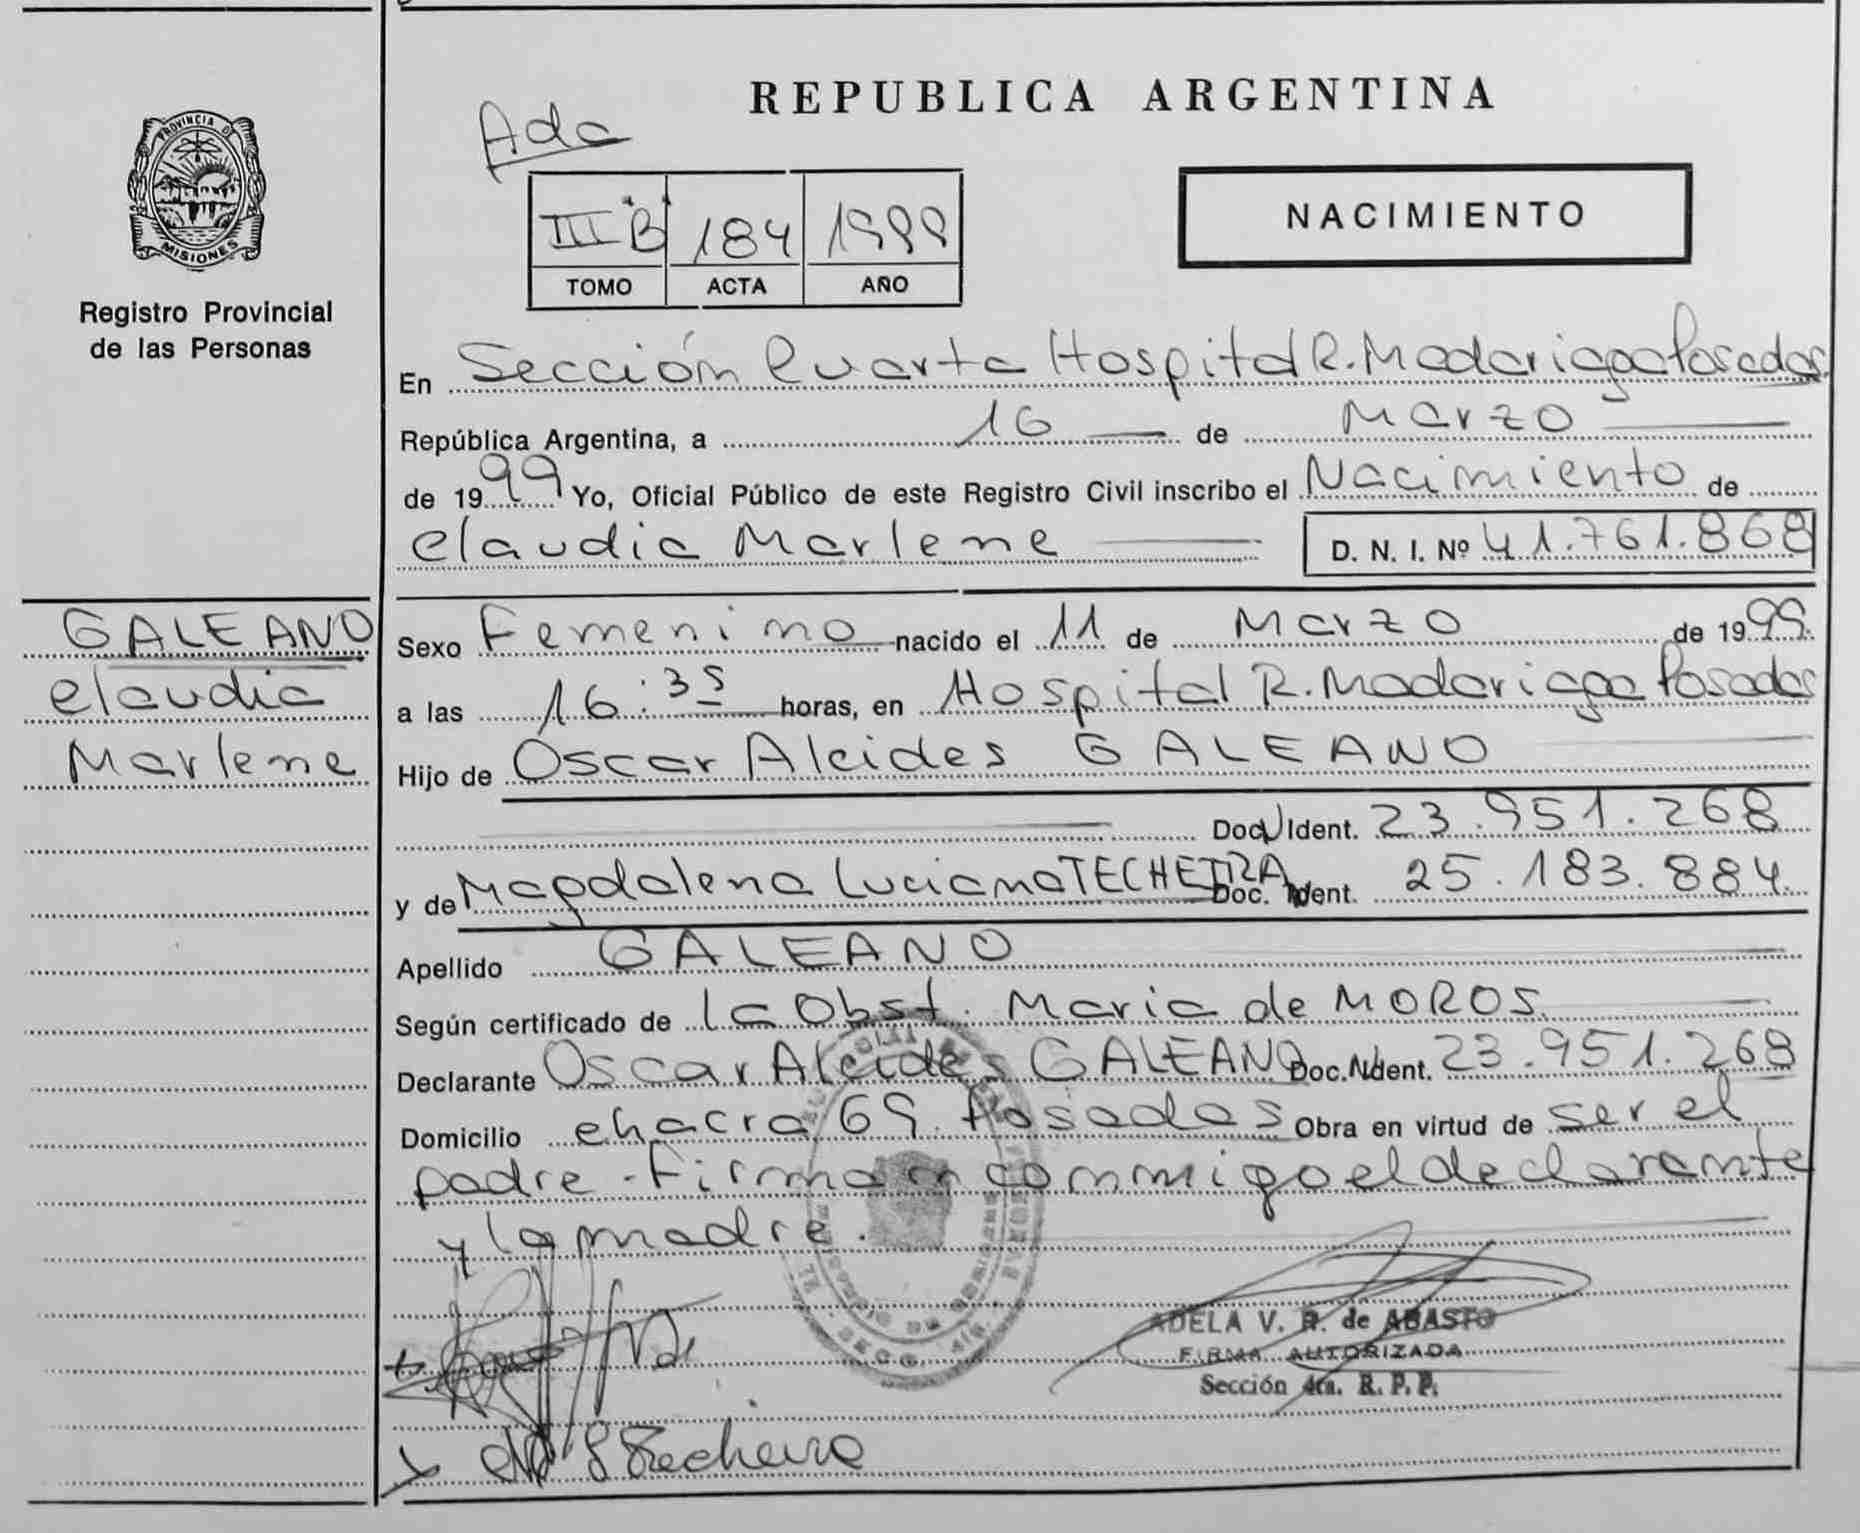 REPUBLICA ARGENTINA
Ada
PROVINCIA DE
MISIONES
Registro Provincial
de las Personas
III "B" 184 1999
TOMO ACTA AÑO
NACIMIENTO
En Sección Cuarta Hospital R. Madariaga Posadas.
República Argentina, a 16 de Marzo
de 1999 Yo, Oficial Público de este Registro Civil inscribo el Nacimiento de
Claudia Marlene D. N. I. Nº 41.761.868
GALEANO
Claudia
Marlene
Sexo Femenino nacido el 11 de Marzo de 1999.
a las 16:35 horas, en Hospital R. Madariaga Posadas
Hijo de Oscar Alcides GALEANO
Doc. Ident. 23.951.268
y de Magdalena Luciana TECHEIRA Doc. Ident. 25.183.884.
Apellido GALEANO
Según certificado de la Obst. Maria de MOROS.
Declarante Oscar Alcides GALEANO Doc. Ident. 23.951.268
Domicilio Chacra 69. Posadas Obra en virtud de ser el
padre - Firman conmigo el declarante
y la madre.
ADELA V. R. de ABASTO
FIRMA AUTORIZADA
Sección 4ta. R. P. P.
Techeira